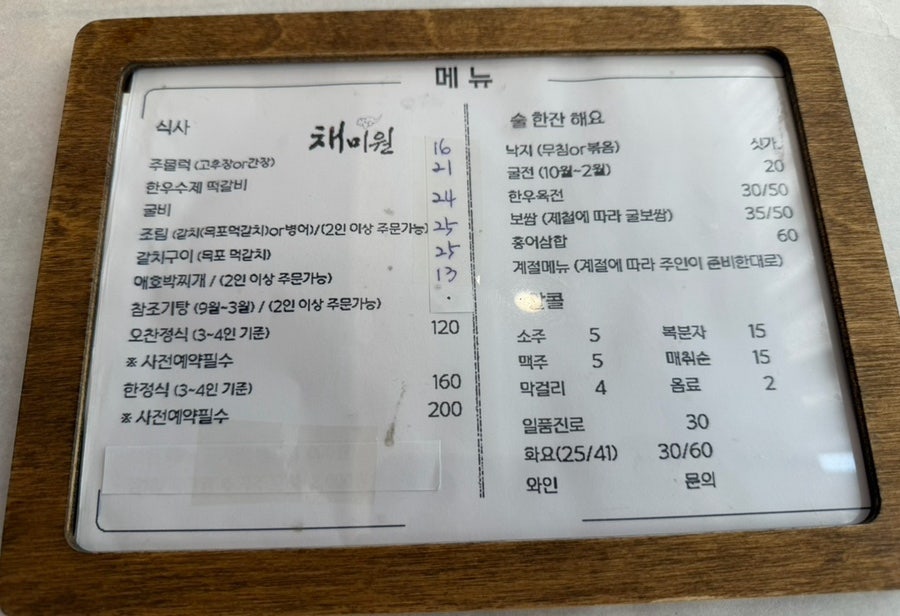 메뉴
식사
채미원
주물럭 (고추장or간장) 16
한우수제 떡갈비 21
굴비 24
조림 (갈치(목포먹갈치)or병어)/(2인 이상 주문가능) 25
갈치구이 (목포 먹갈치) 25
애호박찌개 / (2인 이상 주문가능) 13
참조기탕 (9월~3월) / (2인 이상 주문가능) .
오찬정식 (3~4인 기준) 120
※ 사전예약필수
한정식 (3~4인 기준) 160
※ 사전예약필수 200
술 한잔 해요
낙지 (무침or볶음) 싯가
굴전 (10월~2월) 20
한우육전 30/50
보쌈 (계절에 따라 굴보쌈) 35/50
홍어삼합 60
계절메뉴 (계절에 따라 주인이 준비한대로)
콜
소주 5 복분자 15
맥주 5 매취순 15
막걸리 4 음료 2
일품진로 30
화요(25/41) 30/60
와인 문의